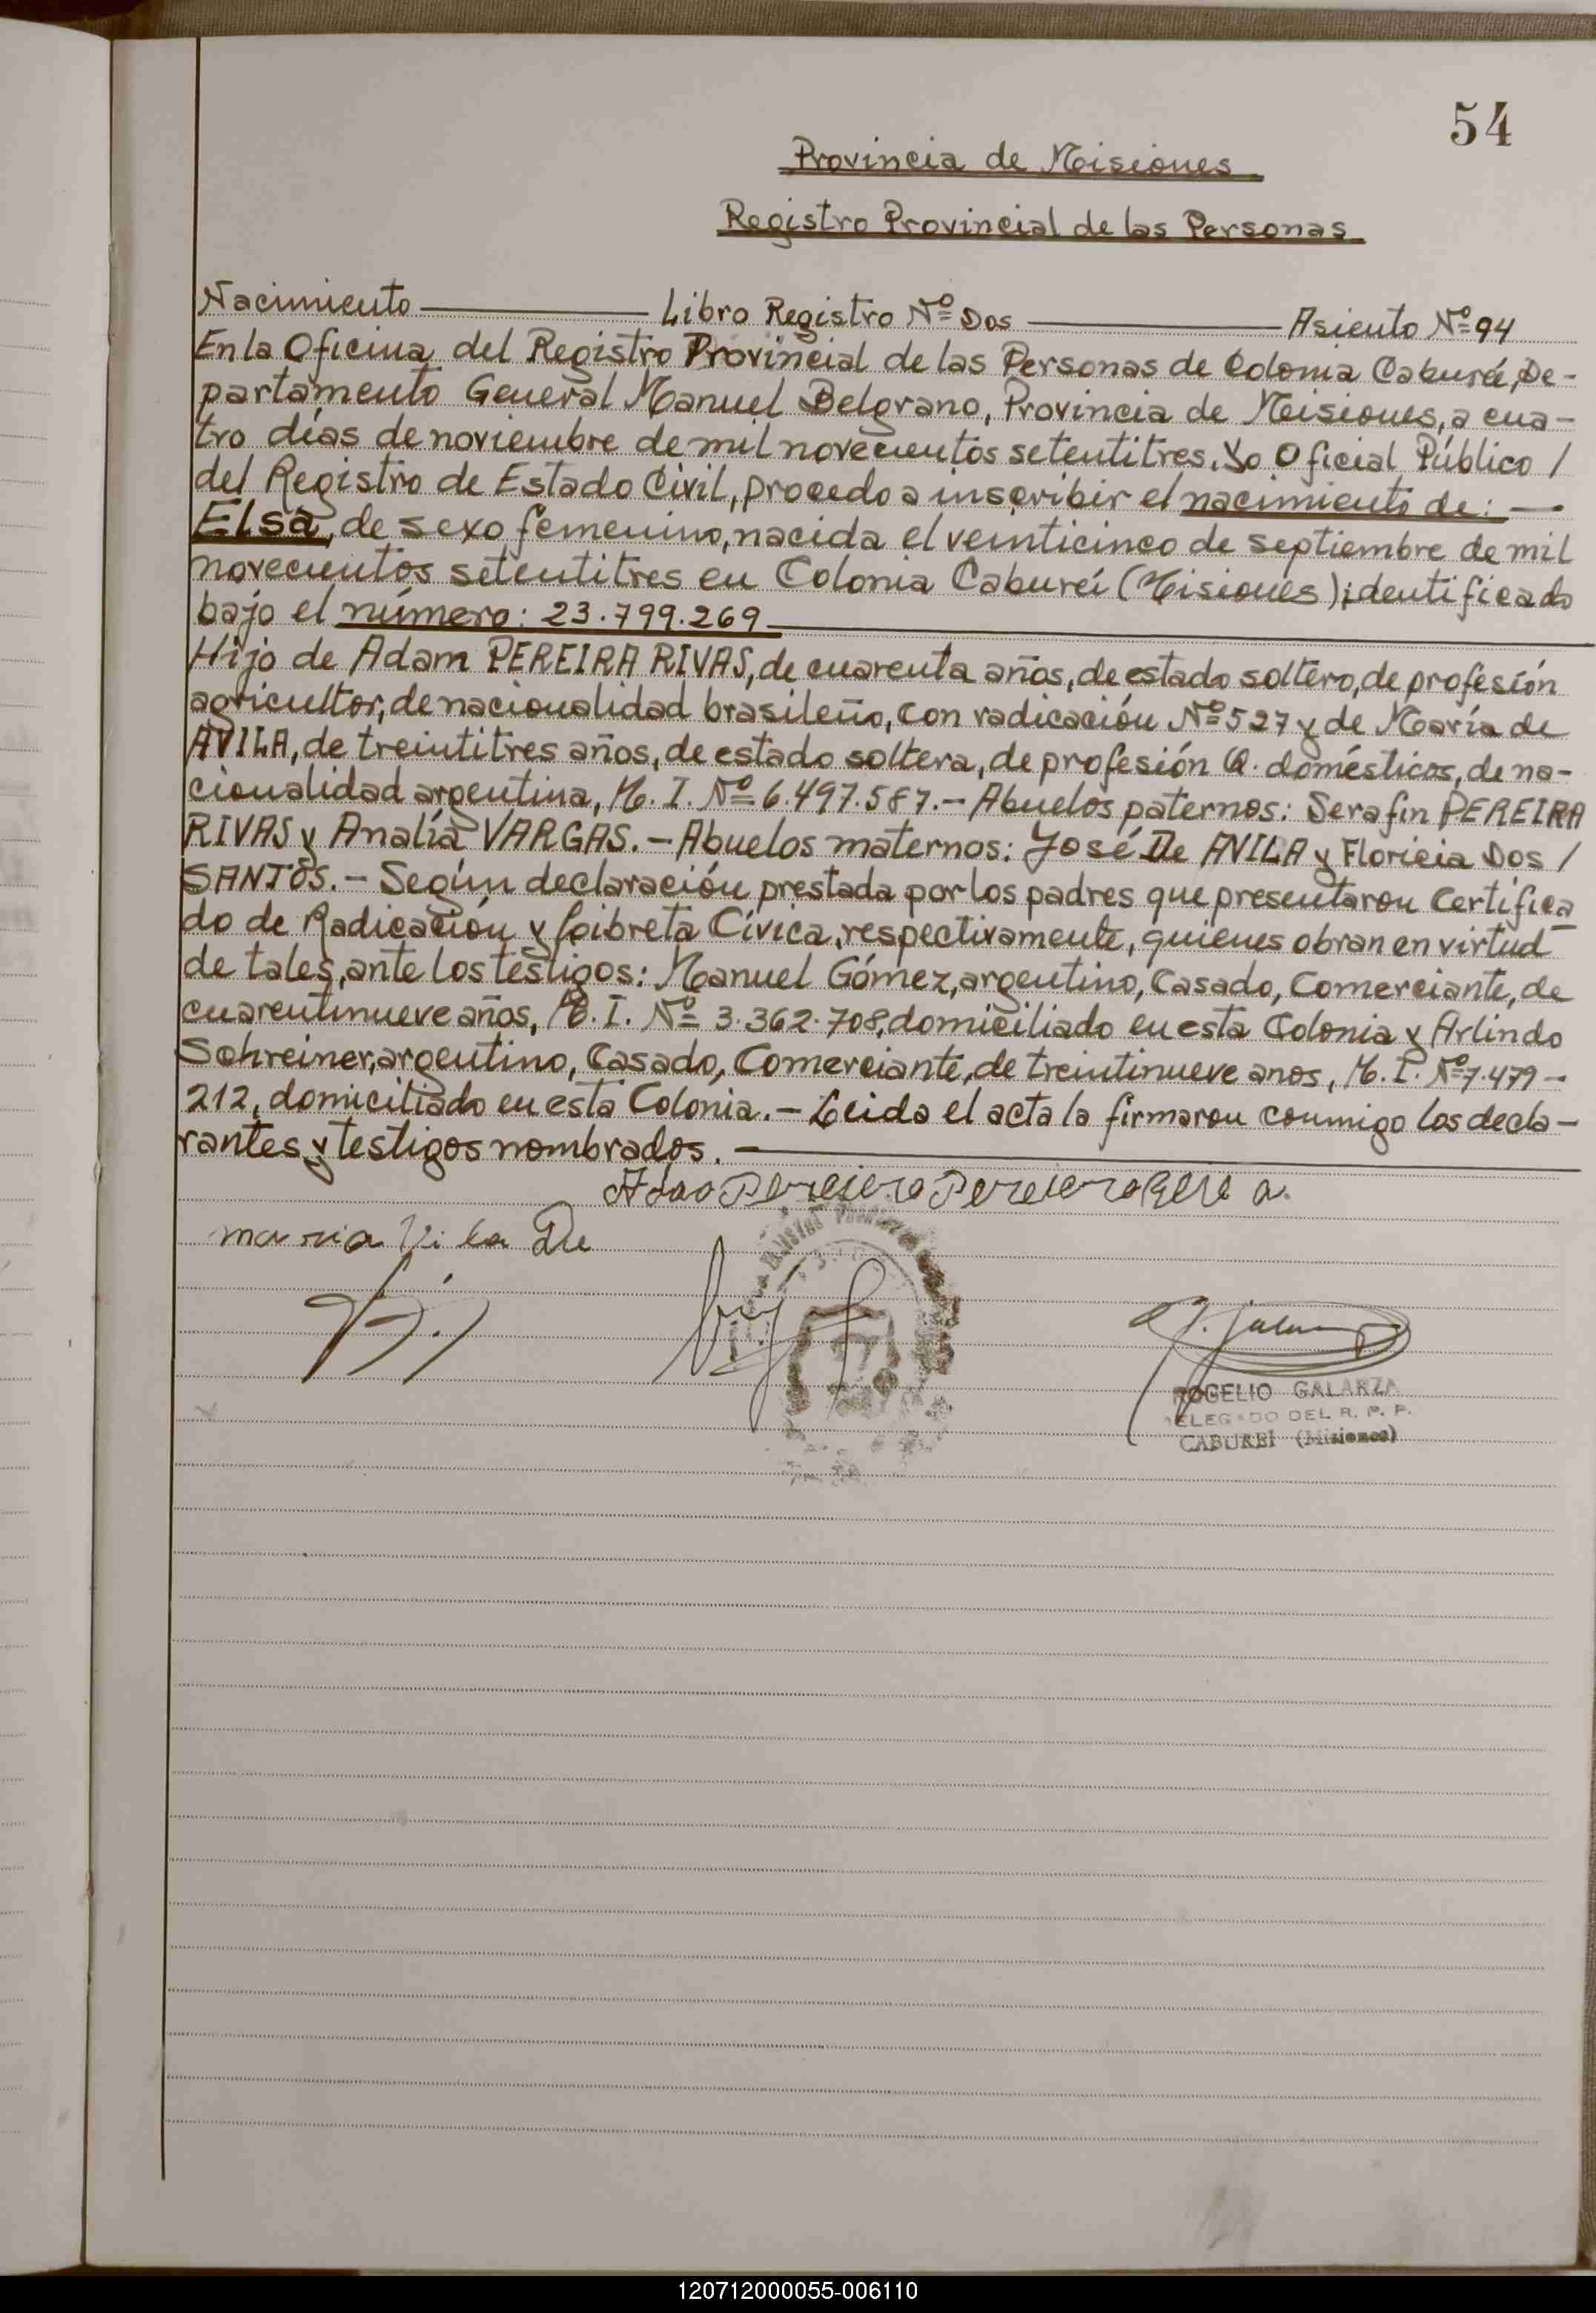 54
Provincia de Misiones
Registro Provincial de las Personas
Nacimiento — Libro Registro Nº Dos — Asiento Nº 94
En la Oficina del Registro Provincial de las Personas de Colonia Caburéi, De-
partamento General Manuel Belgrano, Provincia de Misiones, a cua-
tro días de noviembre de mil novecientos setentitres. Yo Oficial Público /
del Registro de Estado Civil, procedo a inscribir el nacimiento de: —
Elsa, de sexo femenino, nacida el veinticinco de septiembre de mil
novecientos setentitres en Colonia Cabureí (Misiones); identificado
bajo el número: 23.799.269
Hijo de Adam PEREIRA RIVAS, de cuarenta años, de estado soltero, de profesión
agricultor, de nacionalidad brasileño, con radicación Nº 527 y de María de
AVILA, de treintitres años, de estado soltera, de profesión Q. domésticos, de na-
cionalidad argentina, M. I. Nº 6.497.587.- Abuelos paternos: Serafin PEREIRA
RIVAS y Analía VARGAS. - Abuelos maternos: José De AVILA y Floricia Dos /
SANTOS. - Según declaración prestada por los padres que presentaron Certifica
do de Radicación y Libreta Cívica, respectivamente, quienes obran en virtud
de tales, ante los testigos: Manuel Gómez, argentino, Casado, Comerciante, de
cuarentinueve años, M. I. Nº 3.362.708, domiciliado en esta Colonia y Arlindo
Schreiner, argentino, Casado, Comerciante, de treintinueve anos, M. I. Nº 7.479-
212, domiciliado en esta Colonia. - Leida el acta la firmaron conmigo los decla-
rantes y testigos nombrados. —
maria Vi la De
ROGELIO GALARZA
DELEGADO DEL R. P. P.
CABUREI (Misiones)
120712000055-006110